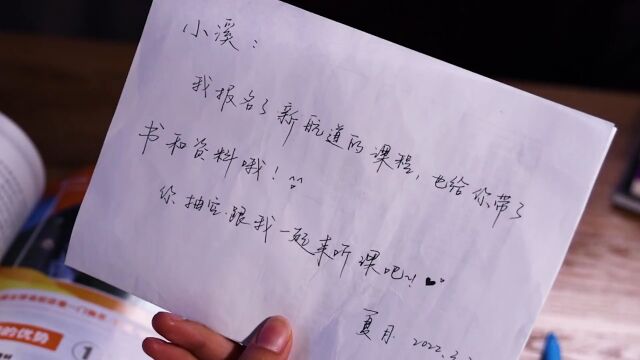 小溪：
我报名了新航道的课程，也给你带了
书和资料哦！^^
你抽空跟我一起来听课吧~! ♥♥
夏月 2022.3.
的优势
1